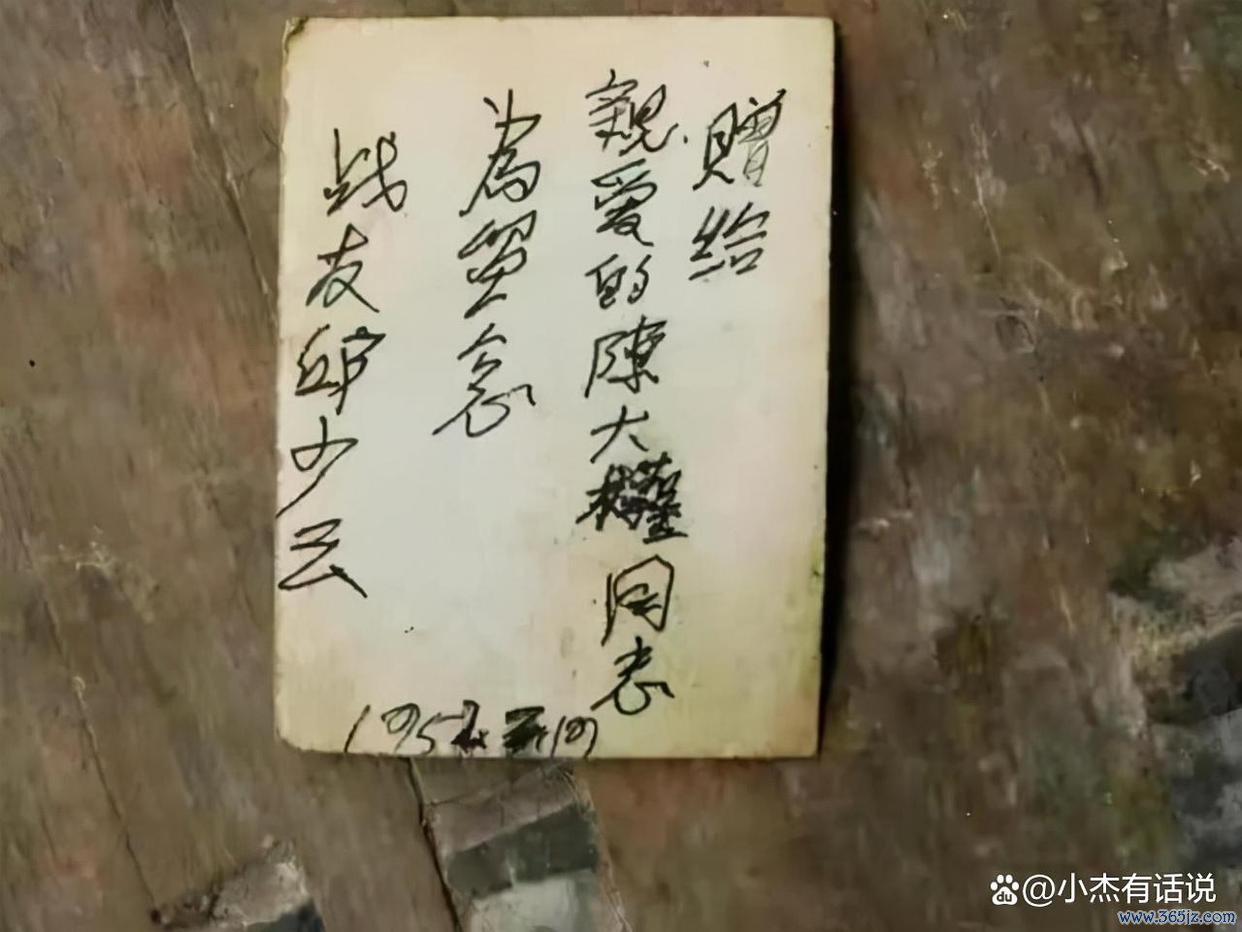 赠给
親爱的陳大權同志
为留念
战友邱少云
195
@小杰有话说
www.365jz.com